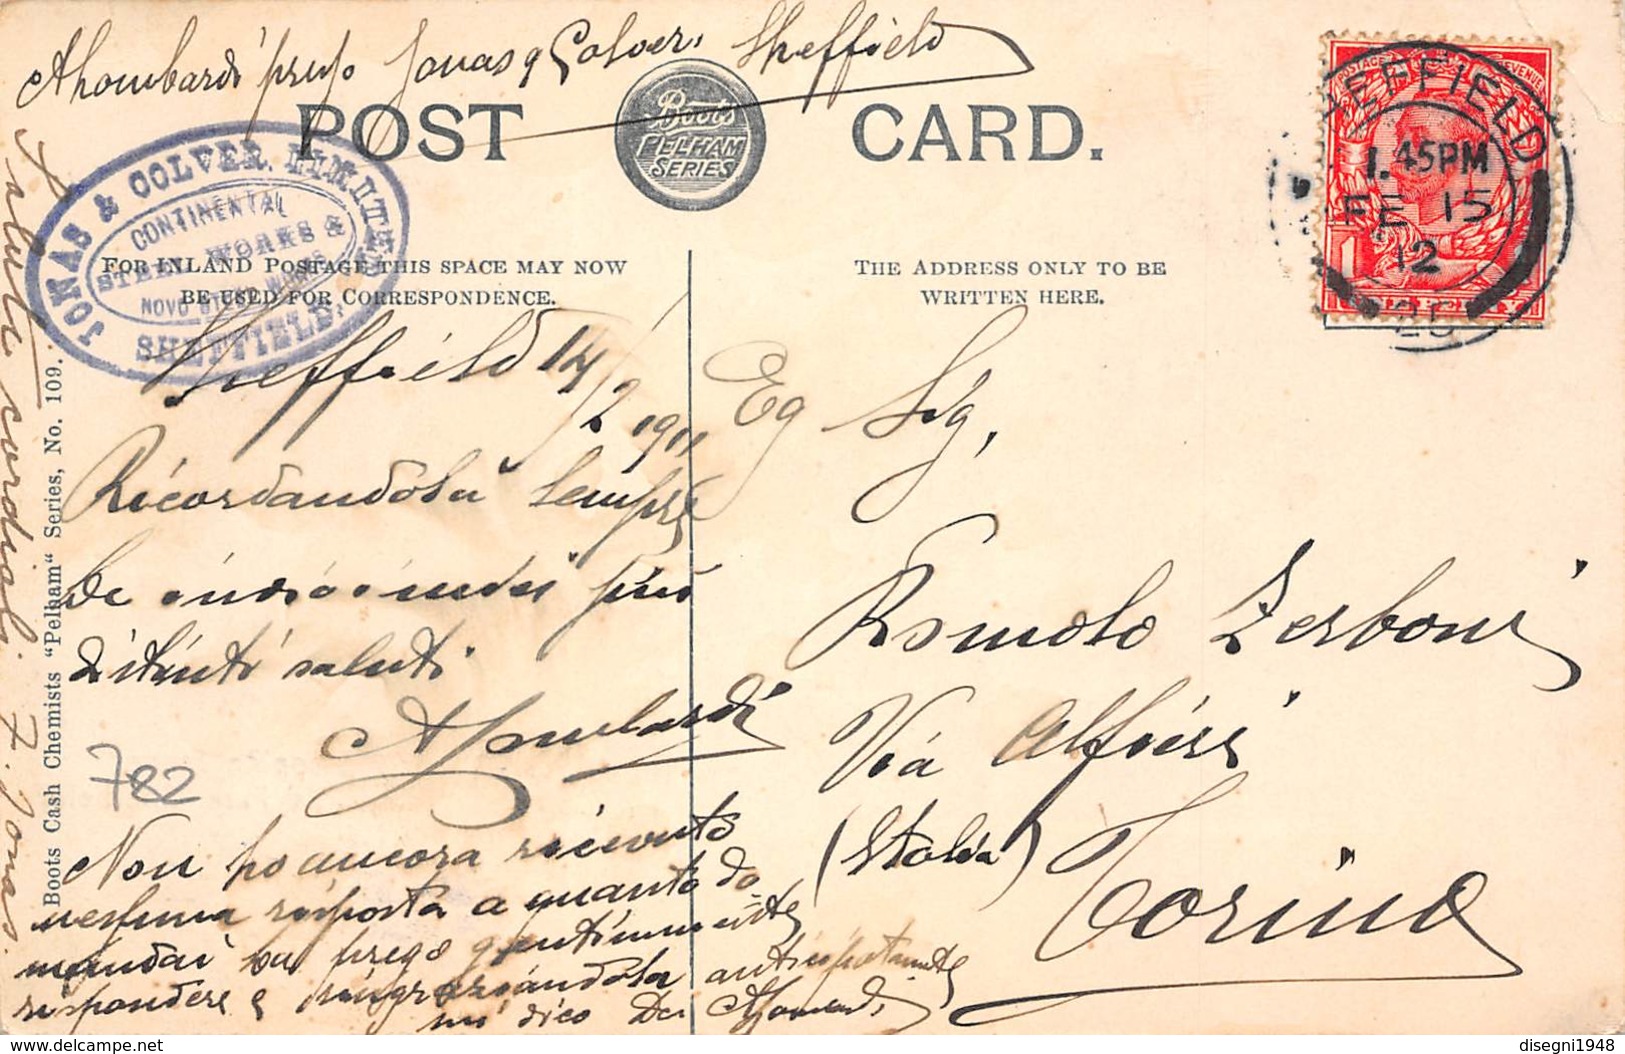 ALombardi presso Jonas & Colver, Sheffield
POST CARD.
Boots
PELHAM
SERIES
JONAS & COLVER, LIMITED
CONTINENTAL
STEEL WORKS &
NOVO STEEL WORKS
SHEFFIELD.
FOR INLAND POSTAGE THIS SPACE MAY NOW
BE USED FOR CORRESPONDENCE.
THE ADDRESS ONLY TO BE
WRITTEN HERE.
POSTAGE REVENUE
SHEFFIELD
1.45PM
FE 15
12
25
Sheffield 14/2 1911
Ricordandola sempre
Le invio i miei più
distinti saluti
ALombardi
Non ho ancora ricevuto
nessuna risposta a quanto do
mandai La prego gentilmente
rispondere e ringraziandola anticipatamente
mi dico Da ALombardi
Eg Sig,
Romolo Zerboni
Via Alfieri
(Italia) Torino
Saluti cordiali F. Jonas.
Boots Cash Chemists "Pelham" Series, No. 109.
782
delcampe.net
disegni1948